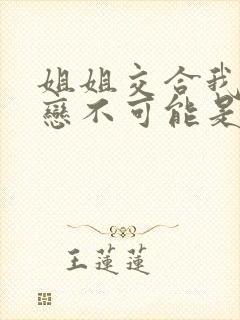 姐姐交合我
戀不可能是
王蓮蓮